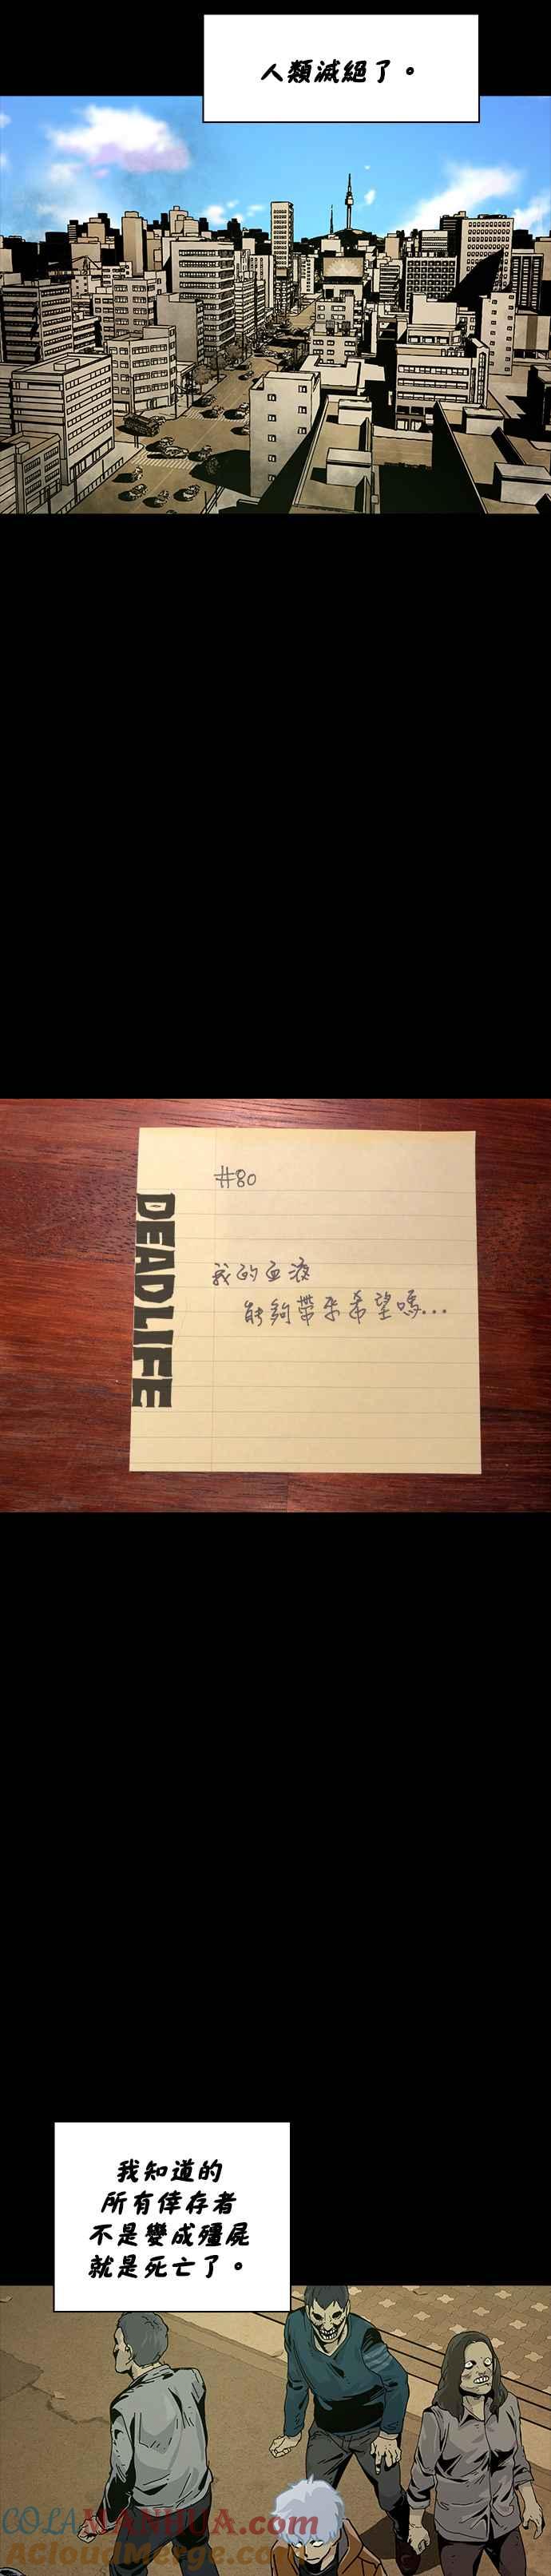 人類滅絕了。
#80
DEADLIFE
我的血液
能夠帶來希望嗎...
我知道的
所有倖存者
不是變成殭屍
就是死亡了。
COLAMANHUA.com
AcloudMerge.com